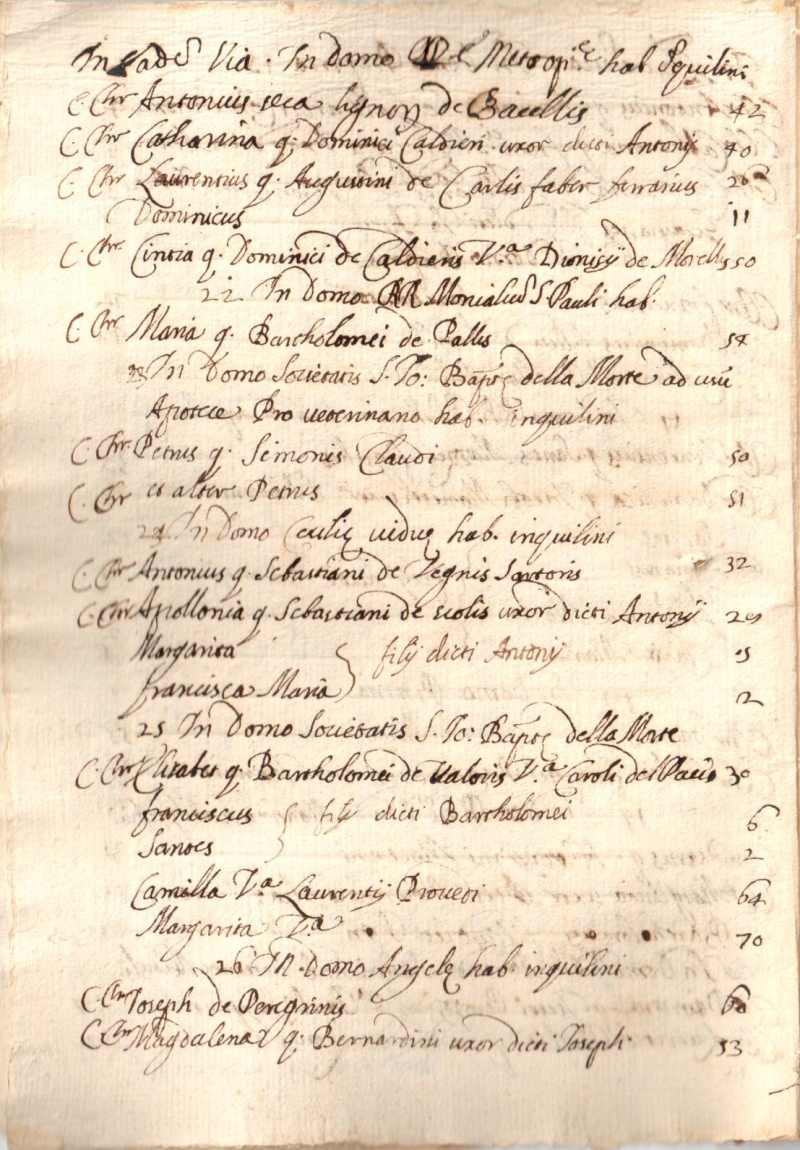 In ead. Via. In Domo hab Iquilini
C. Chr Antonius seca lignorū de Bacellis 42
C. Chr Catharina q. Dominici Calderi uxor dicti Antonij 40
C. Chr Laurentius q. Augustini de Carlis faber ferrarius 26
Dominicus 11
C. Chr Cintia q. Dominici de Calderiis V.ª Dionisij de Morellis 50
22 In Domo RR. Monialiū S. Pauli hab.
C. Chr Maria q. Bartholomei de Pallis 54
23 In Domo Societatis S. Io: Bapt.ę della Morte ad usū
Apotece Pro veterinario hab. inquilini
C. Chr. Petrus q. Simonis Claudi 50
C. Chr et alter Petrus 51
24 In Domo Cecilię viduę hab. inquilini
C. Chr Antonius q. Sebastiani de Vegnis Sartoris 32
C. Chr Apollonia q. Sebastiani de scolis uxor dicti Antonij 29
Margarita } filij dicti Antonij 5
francisca Maria } 2
25 In Domo Societatis S. Io: Bapt.ę della Morte
C. Chr Elisabet q. Bartholomei de Valoris V.ª Caroli del 30
franciscus } filij dicti Bartholomei 6
Santes } 2
Camilla V.ª Laurentij Provedi 64
Margarita V.ª 70
26 In Domo Angelę hab. inquilini
C. Chr Ioseph de Peregrinis 60
C. Chr Magdalena q. Bernardini uxor dicti Ioseph 53